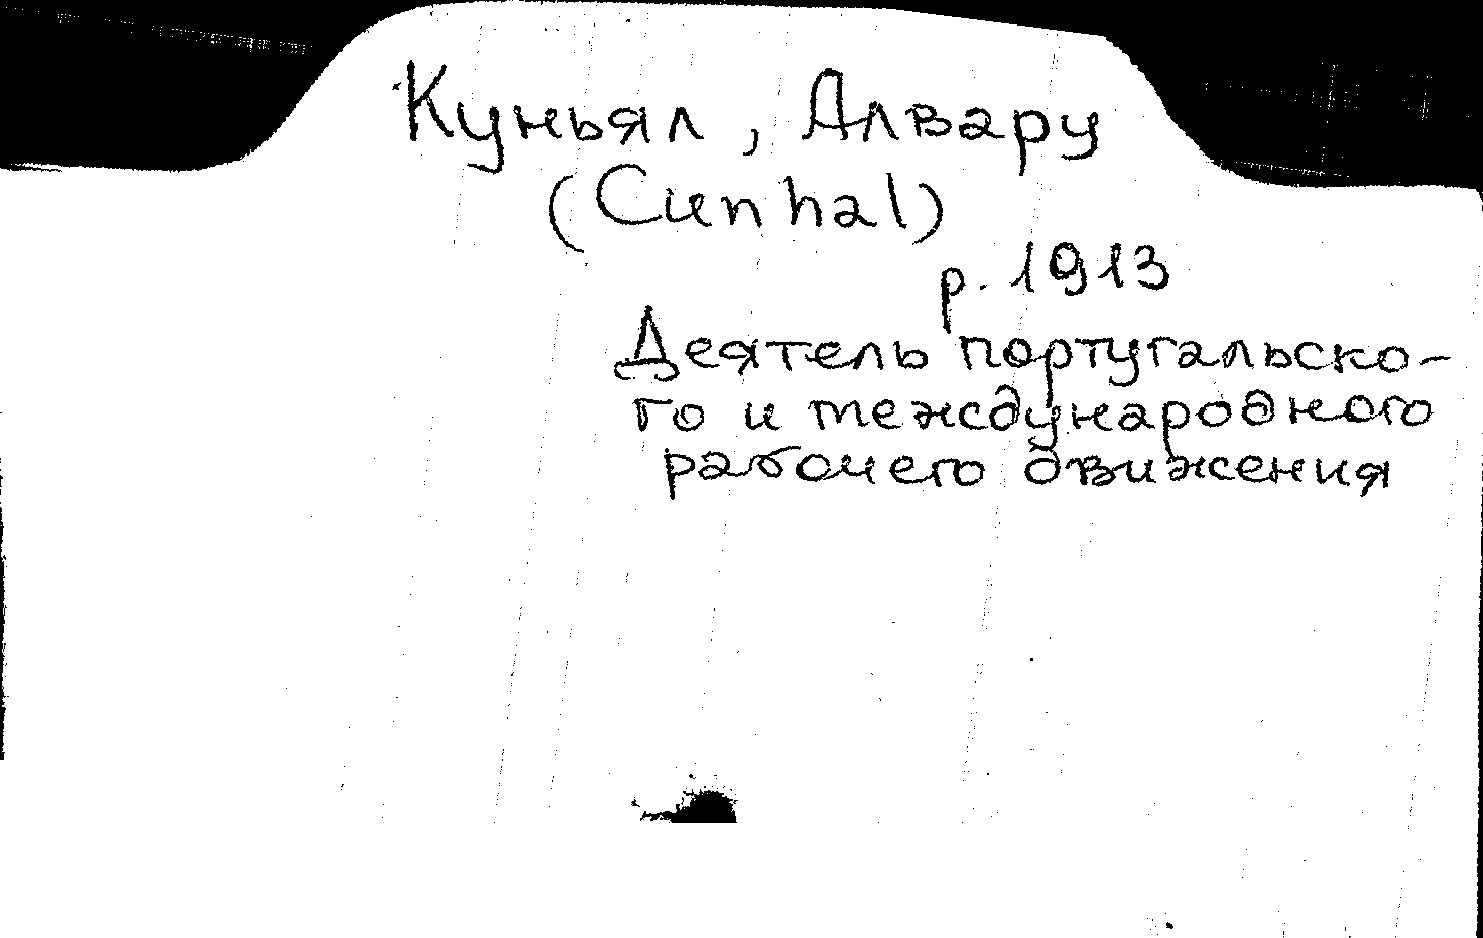 Куньял, Алвару
(Cunhal)
р. 1913
Деятель португальско-
го и международного
рабочего движения